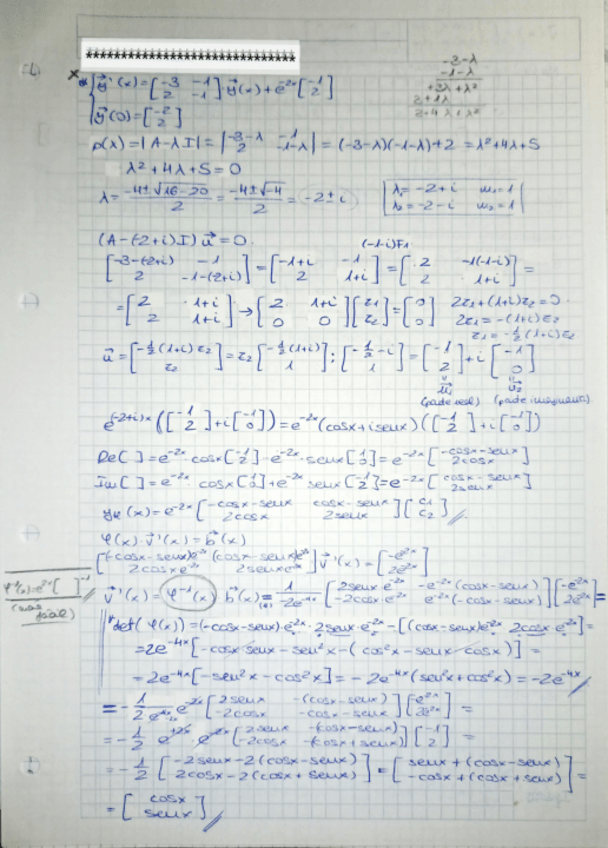 ********************************
* { y⃗'(x) = [-3 -1; 2 -1] y⃗(x) + e^-2x [-1; 2]
y⃗(0) = [-2; 2]
-3-λ
-1-λ
+3λ+λ²
3+1λ
3+4λ+λ²
p(λ) = |A-λI| = |-3-λ -1; 2 -1-λ| = (-3-λ)(-1-λ)+2 = λ²+4λ+5
λ²+4λ+5=0
λ = (-4±√16-20)/2 = (-4±√-4)/2 = -2±i
λ1 = -2+i m1=1
λ2 = -2-i m2=1
(A-(-2+i)I) u⃗ = 0
(-1-i)F1
[-3-(-2+i) -1; 2 -1-(-2+i)] = [-1-i -1; 2 1-i] = [2 -1(-1-i); 2 1+i] =
= [2 1+i; 2 1+i] → [2 1+i; 0 0][z1; z2] = [0; 0] 2z1+(1+i)z2=0
2z1 = -(1+i)z2
z1 = -½(1+i)z2
u⃗ = [-½(1+i)z2; z2] = z2 [-½(1+i); 1]; [-½-i; 1] = [-1; 2] + i[-1; 0]
u⃗1 u⃗2
(parte real) (parte imaginaria)
e^(-2+i)x ([-1; 2] + i[-1; 0]) = e^-2x (cosx+isenx)([-1; 2] + i[-1; 0])
Re( ) = e^-2x cosx[-1; 2] - e^-2x senx[-1; 0] = e^-2x [-cosx-senx; 2cosx]
Im( ) = e^-2x cosx[-1; 0] + e^-2x senx[-1; 2] = e^-2x [cosx-senx; 2senx]
yh(x) = e^-2x [-cosx-senx cosx-senx; 2cosx 2senx][c1; c2]
φ(x)·v⃗'(x) = b⃗(x)
[(-cosx-senx)e^-2x (cosx-senx)e^-2x; 2cosxe^-2x 2senxe^-2x] v⃗'(x) = [-e^-2x; 2e^-2x]
φ^-1(x)=e^2x[ ]^-1
(más fácil)
v⃗'(x) = φ^-1(x) b⃗(x) = 1/-2e^-4x [2senx·e^-2x -e^-2x(cosx-senx); -2cosx·e^-2x e^-2x(-cosx-senx)][-e^-2x; 2e^-2x] =
*det(φ(x)) = (-cosx-senx)·e^-2x·2senx·e^-2x - [(cosx-senx)e^-2x 2cosx·e^-2x] =
= 2e^-4x [-cosx·senx - sen²x - (cos²x - senx·cosx)] =
= 2e^-4x [-sen²x - cos²x] = -2e^-4x (sen²x+cos²x) = -2e^-4x
= -½ [2senx -(cosx-senx); -2cosx -cosx-senx][-e^-2x; 2e^-2x] =
= -½ [2senx -(cosx-senx); -2cosx -(cosx+senx)][-1; 2] =
= -½ [-2senx-2(cosx-senx); 2cosx-2(cosx+senx)] = [senx+(cosx-senx); -cosx+(cosx+senx)] =
= [cosx; senx]